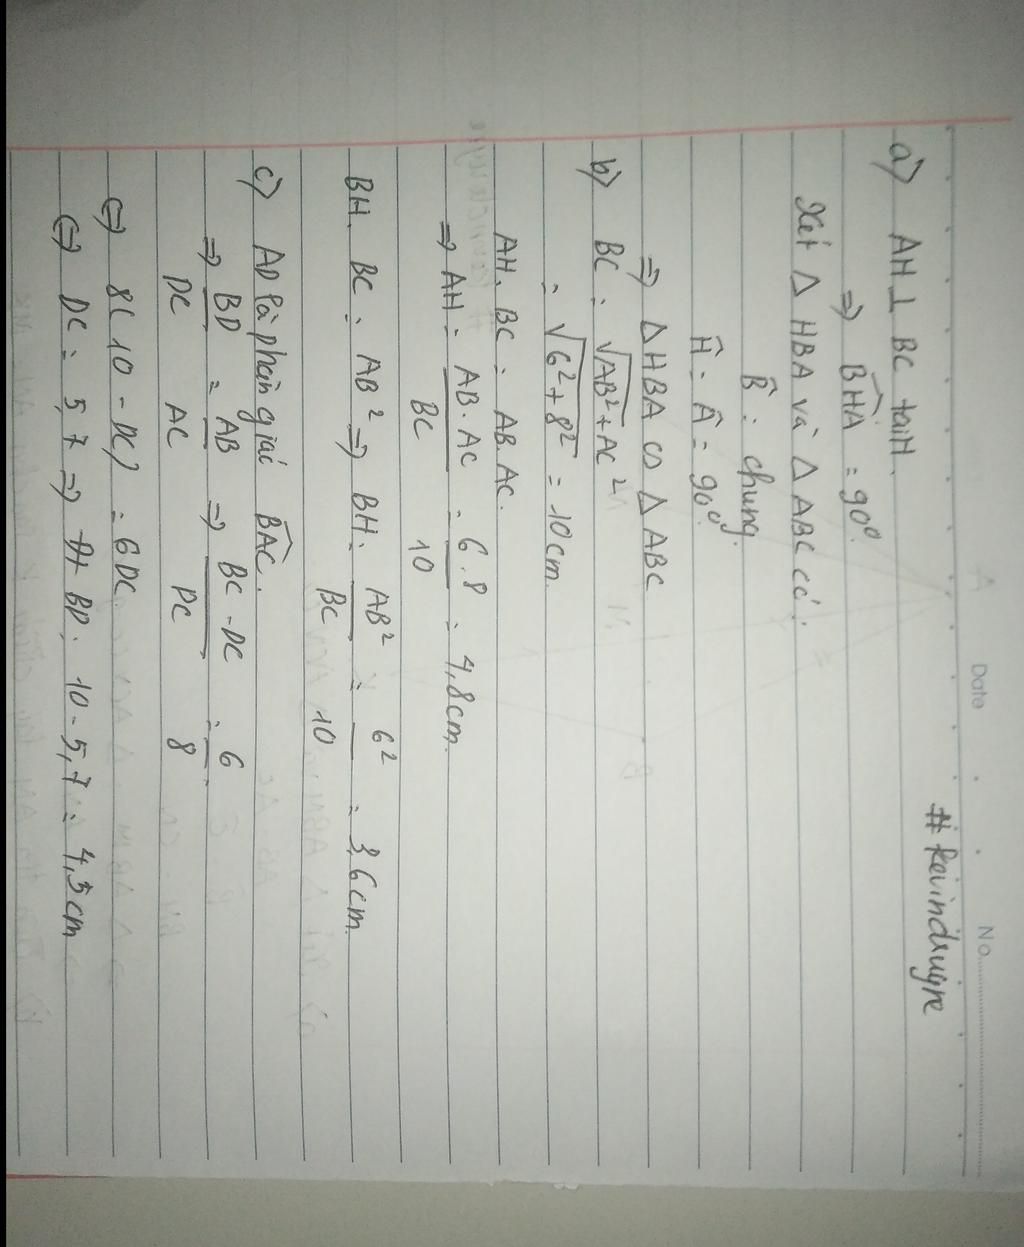 Date No.
# kevindruyne
a) AH ⊥ BC tại H.
⇒ BHA = 90°.
Xét Δ HBA và Δ ABC có:
B̂ : chung.
Ĥ = Â = 90°.
⇒ Δ HBA ∽ Δ ABC
b) BC = √AB² + AC²
= √6² + 8² = 10cm.
AH. BC = AB. AC.
⇒ AH = AB. AC / BC = 6.8 / 10 = 4,8cm.
BH. BC = AB² ⇒ BH = AB² / BC = 6² / 10 = 3,6cm.
c) AD là phân giác BAC.
⇒ BD / DC = AB / AC ⇒ BC - DC / DC = 6 / 8
⇔ 8(10 - DC) = 6DC
⇔ DC = 5,7 ⇒ BD = 10 - 5,7 = 4,3cm